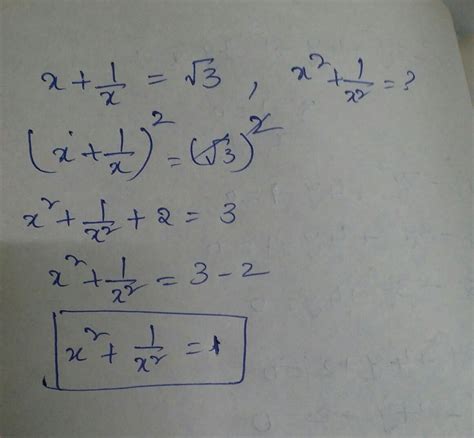 x + 1/x = √3 , x² + 1/x² = ?
(x + 1/x)² = (√3)²
x² + 1/x² + 2 = 3
x² + 1/x² = 3 - 2
x² + 1/x² = 1